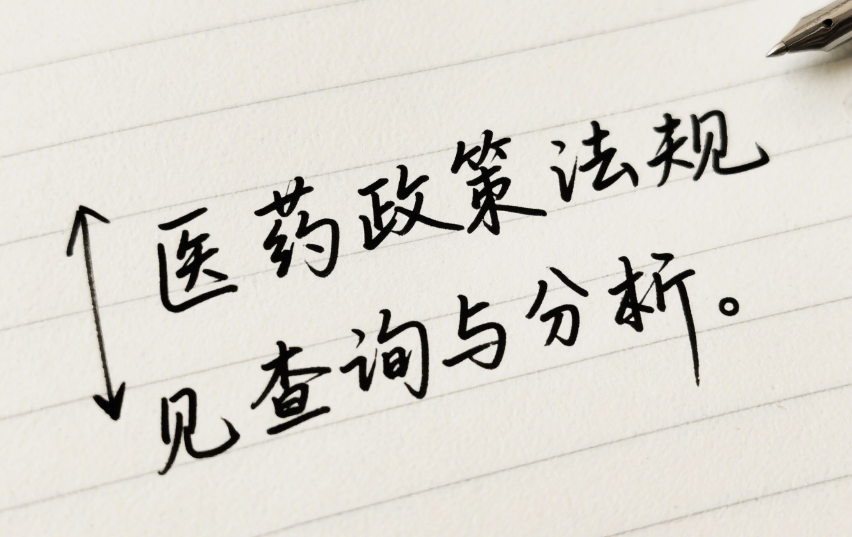 医药政策法规
见查询与分析。